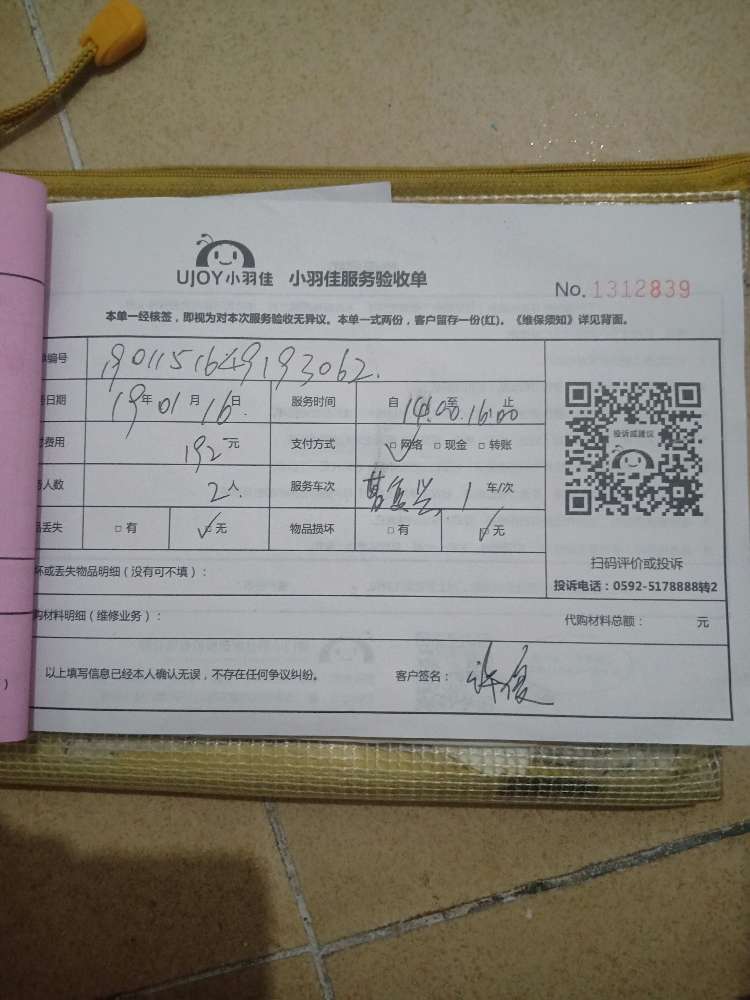 UJOY小羽佳 小羽佳服务验收单
No. 1312839
本单一经核签，即视为对本次服务验收无异议。本单一式两份，客户留存一份(红)。《维保须知》详见背面。
编号 1901151649193062.
日期 19年01月16日. 服务时间 自 14:00 至 16:00 止
费用 192元 支付方式 □网络 □现金 □转账
人数 2人. 服务车次 曹复兴 1 车/次
丢失 □有 □无 物品损坏 □有 □无
投诉或建议
扫码评价或投诉
投诉电话：0592-5178888转2
坏或丢失物品明细（没有可不填）：
购材料明细（维修业务）： 代购材料总额： 元
以上填写信息已经本人确认无误，不存在任何争议纠纷。 客户签名：